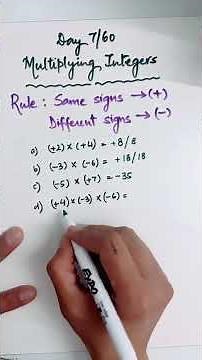 Day 7/60
Multiplying Integers
Rule : Same signs → (+)
Different signs → (-)
a) (+2) × (+4) = +8/8
b) (-3) × (-6) = +18/18
c) (-5) × (+7) = -35
d) (+4) × (-3) × (-6) =
EXPO